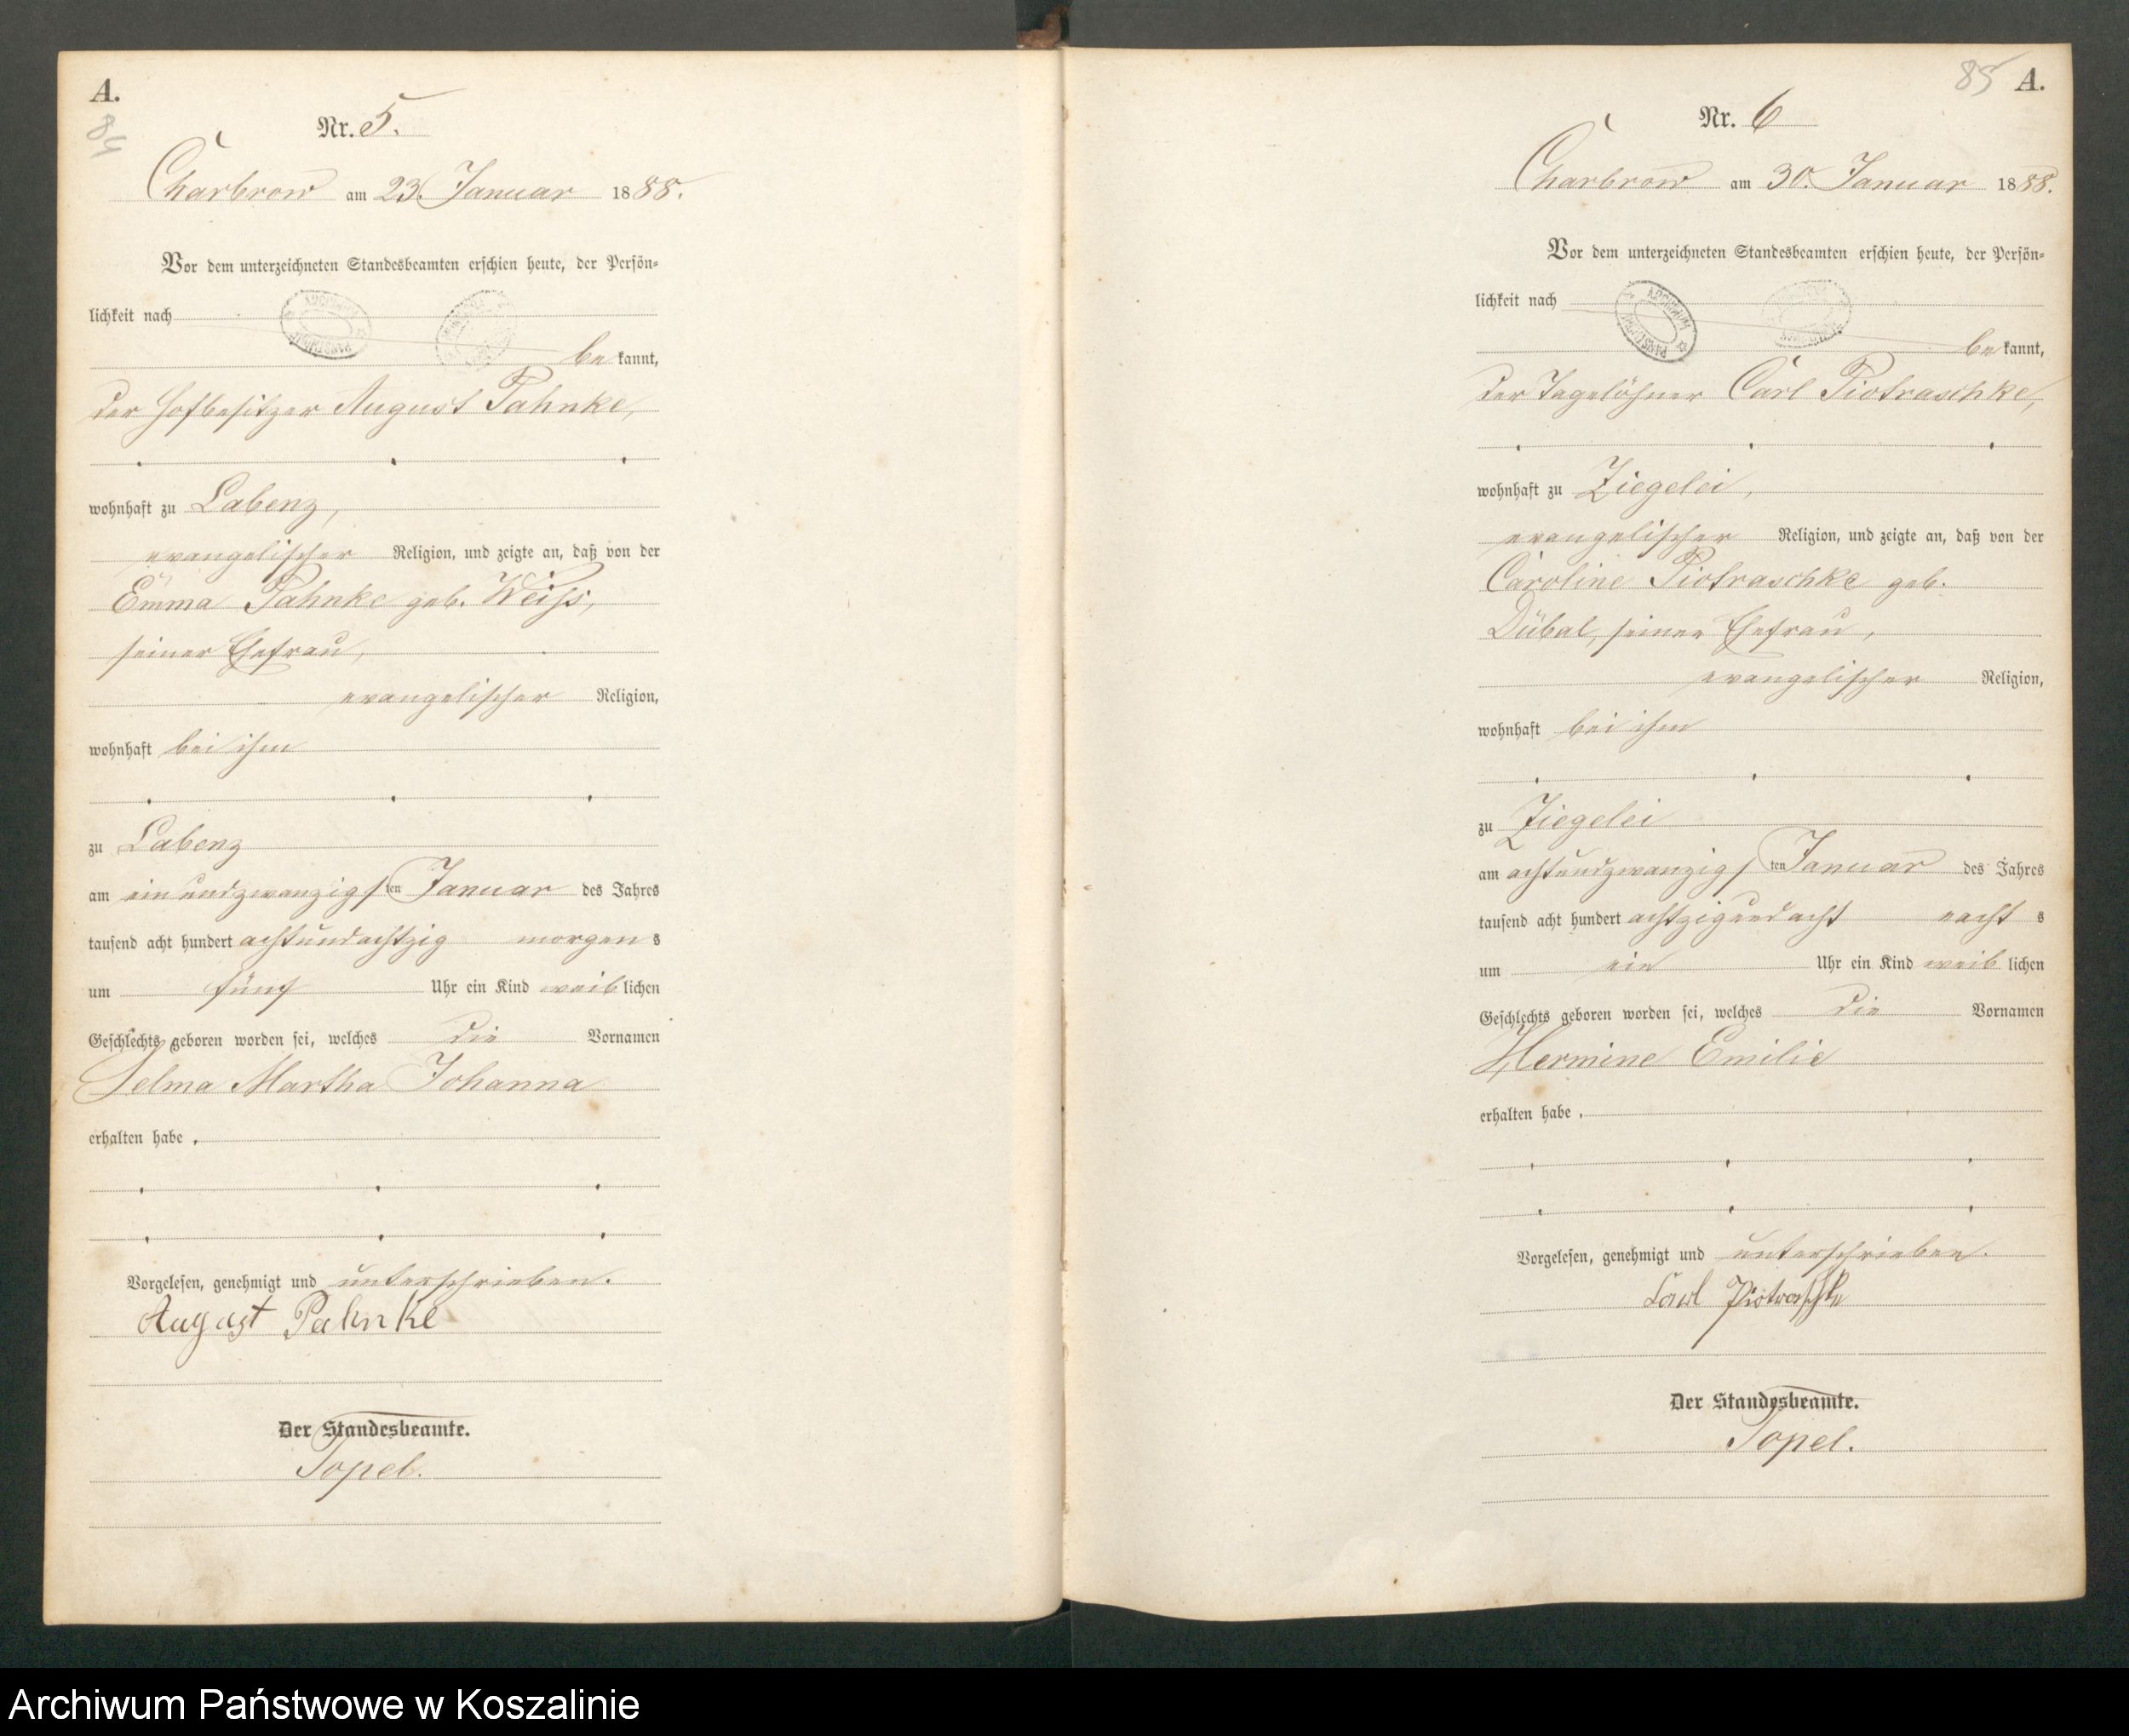 A.
84
Nr. 5.
Charbrow am 23. Januar 1888.
Vor dem unterzeichneten Standesbeamten erschien heute, der Persön-
lichkeit nach
be kannt,
der Hofbesitzer August Pahnke,
wohnhaft zu Labenz,
evangelischer Religion, und zeigte an, daß von der
Emma Pahnke geb. Weiß,
seiner Ehefrau,
evangelischer Religion,
wohnhaft bei ihm
zu Labenz
am ein und zwanzigsten Januar des Jahres
tausend acht hundert achtundachtzig morgens
um fünf Uhr ein Kind weiblichen
Geschlechts geboren worden sei, welches die Vornamen
Selma Martha Johanna
erhalten habe.
Vorgelesen, genehmigt und unterschrieben.
August Pahnke
Der Standesbeamte.
Topel.
85 A.
Nr. 6
Charbrow am 30. Januar 1888.
Vor dem unterzeichneten Standesbeamten erschien heute, der Persön-
lichkeit nach
be kannt,
der Tagelöhner Carl Piotraschke,
wohnhaft zu Ziegelei,
evangelischer Religion, und zeigte an, daß von der
Caroline Piotraschke geb.
Dübal, seiner Ehefrau,
evangelischer Religion,
wohnhaft bei ihm
zu Ziegelei
am achtundzwanzigsten Januar des Jahres
tausend acht hundert achtzigundacht nachts
um ein Uhr ein Kind weiblichen
Geschlechts geboren worden sei, welches die Vornamen
Hermine Emilie
erhalten habe.
Vorgelesen, genehmigt und unterschrieben.
Carl Piotraschke
Der Standesbeamte.
Topel.
Archiwum Państwowe w Koszalinie